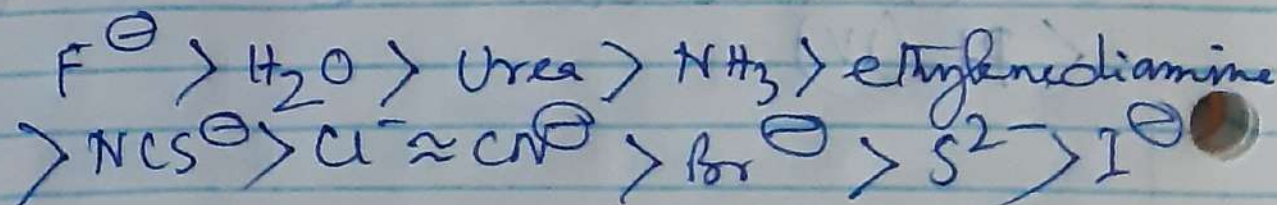 F⊖ > H₂O > Urea > NH₃ > ethylenediamine
> NCS⊖ > Cl⁻ ≈ CN⊖ > Br⊖ > S²⁻ > I⊖